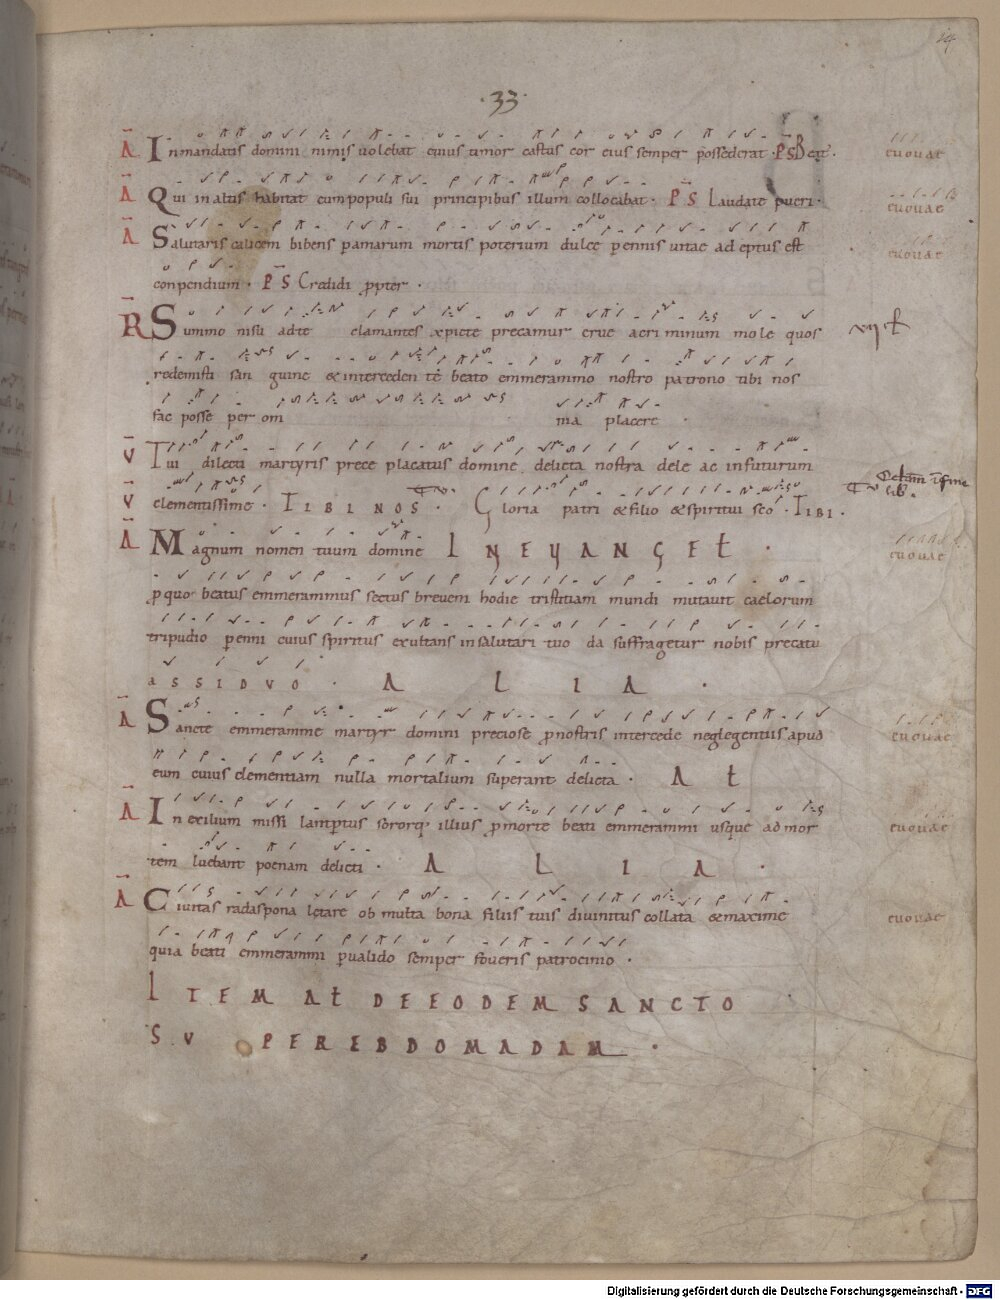 14
·33·
A In mandatis domini nimis volebat cuius timor castus cor eius semper possederat · PS Beat̄ · euouae
A Qui in altis habitat cum populi sui principibus illum collocabat · PS Laudate pueri · euouae
A Salutaris calicem bibens pamarum mortis poterium dulce pennis vitae adeptus est euouae
conpendium · PS Credidi ꝓpter ·
R Summo nisu ad te clamantes xp̄icte precamur erue aeri minum mole quos
redemisti san guine & interceden te beato emmerammo nostro patrono tibi nos
fac posse per om nia placere
V Tui dilecti martyris prece placatus domine delicta nostra dele ac infuturum
V clementissime · TIBI NOS · Gloria patri & filio & spiritui sc̄o · TIBI ·
A Magnum nomen tuum domine IN EVANGEŁ · euouae
ꝓ quo beatus emmerammus sectus brevem hodie tristitiam mundi mutavit caelorum
tripudio ꝑenni cuius spiritus exultans in salutari tuo da suffragetur nobis precatu
ASSIDVO · ALIA ·
A Sancte emmeramme martyr domini preciose ꝓ nostris intercede neglegentiis apud euouae
eum cuius clementiam nulla mortalium superant delicta · AŁ
A In exilium missi lantptus sororq; illius ꝓ morte beati emmerammi usque ad mor euouae
tem luebant poenam delicti · ALIA ·
A Civitas radaspona letare ob multa bona filiis tuis divinitus collata & maxime euouae
quia beati emmerammi ꝑvalido semper foveris patrocinio ·
ITEM AŁ DE EODEM SANCTO
SVPER EBDOMADAM ·
Digitalisierung gefördert durch die Deutsche Forschungsgemeinschaft - DFG